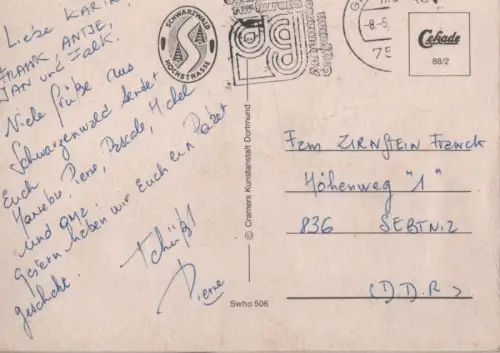 Liebe KARIN,
FRANK ANTJE,
JAN und Falk.
Viele Grüße aus
Schwarzenwald sendet
Euch
Pierre, Pascale, Michel
und
Gestern haben wir Euch ein Paket
geschickt.
Tschüß!
Pierre
SCHWARZWALD
HOCHSTRASSE
© Cramers Kunstanstalt Dortmund
Swho 506
-8.-5.
75
Cekade
88/2
Fam ZIRNSTEIN Franck
Höhenweg "1"
836 SEBTNIZ
(D.D.R)